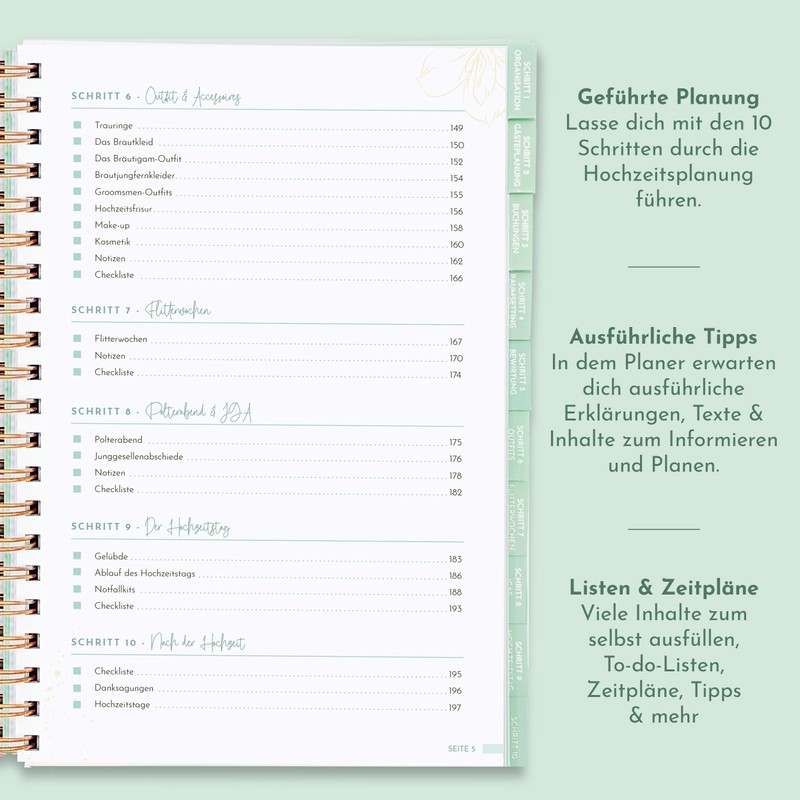 SCHRITT 6 - Outfit & Accessoires
Trauringe 149
Das Brautkleid 150
Das Bräutigam-Outfit 152
Brautjungfernkleider 154
Groomsmen-Outfits 155
Hochzeitsfrisur 156
Make-up 158
Kosmetik 160
Notizen 162
Checkliste 166
SCHRITT 7 - Flitterwochen
Flitterwochen 167
Notizen 170
Checkliste 174
SCHRITT 8 - Polterabend & JGA
Polterabend 175
Junggesellenabschiede 176
Notizen 178
Checkliste 182
SCHRITT 9 - Der Hochzeitstag
Gelübde 183
Ablauf des Hochzeitstags 186
Notfallkits 188
Checkliste 193
SCHRITT 10 - Nach der Hochzeit
Checkliste 195
Danksagungen 196
Hochzeitstage 197
SEITE 5
SCHRITT 1
ORGANISATION
SCHRITT 2
GÄSTEPLANUNG
SCHRITT 3
BUCHUNGEN
SCHRITT 4
SCHRITT 5
BEWIRTUNG
SCHRITT 6
OUTFITS
SCHRITT 7
SCHRITT 8
SCHRITT 9
SCHRITT 10
Geführte Planung
Lasse dich mit den 10
Schritten durch die
Hochzeitsplanung
führen.
Ausführliche Tipps
In dem Planer erwarten
dich ausführliche
Erklärungen, Texte &
Inhalte zum Informieren
und Planen.
Listen & Zeitpläne
Viele Inhalte zum
selbst ausfüllen,
To-do-Listen,
Zeitpläne, Tipps
& mehr